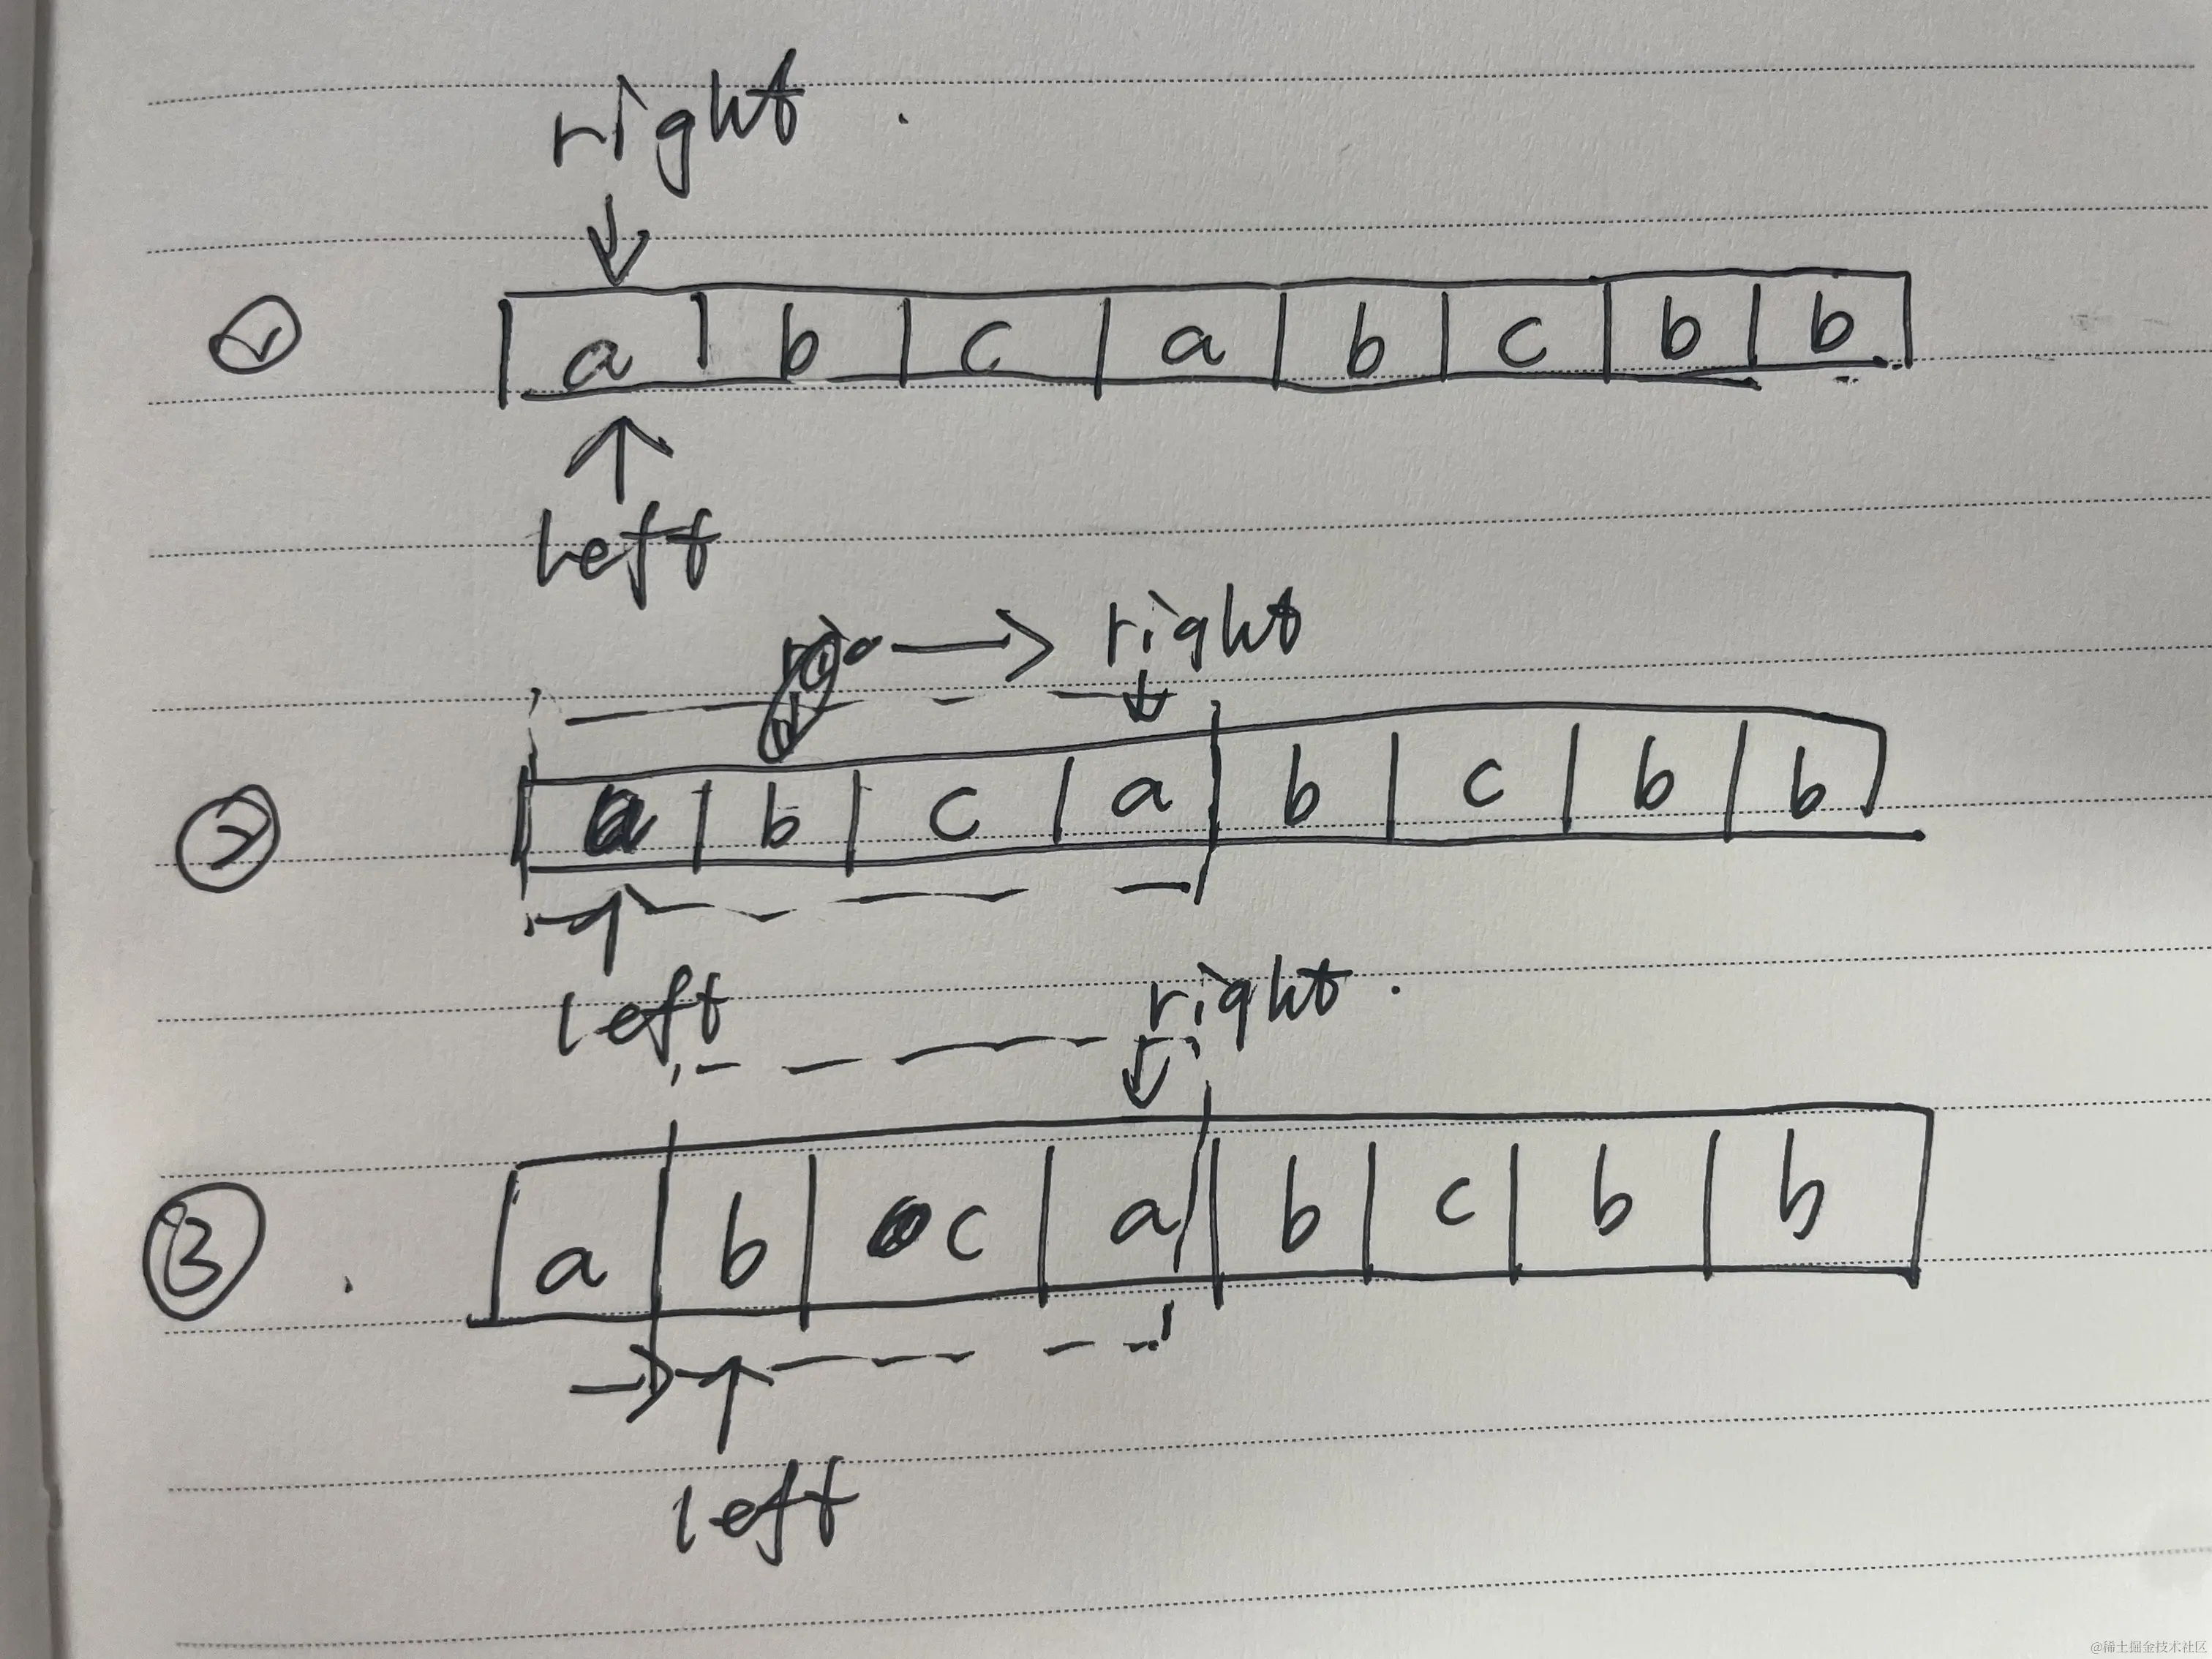 right
① a b c a b c b b
left
right
② a b c a b c b b
left
right
③ a b c a b c b b
left
@稀土掘金技术社区